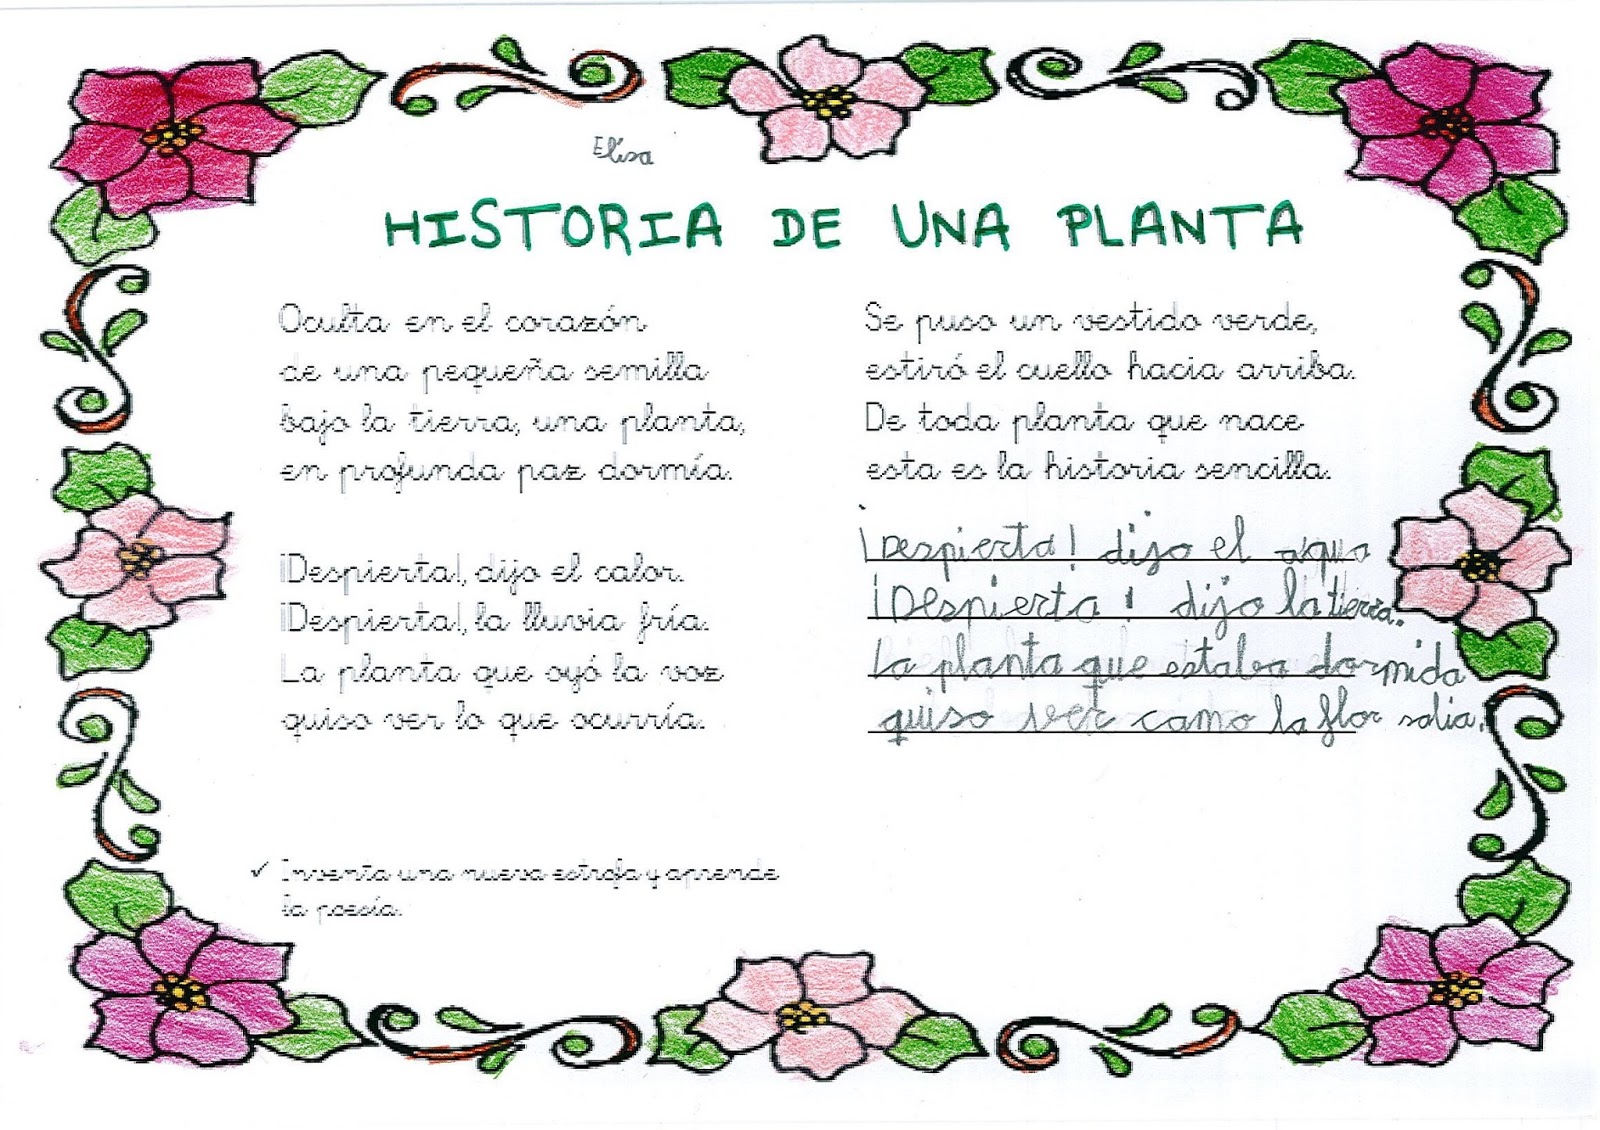 Elisa
HISTORIA DE UNA PLANTA
Oculta en el corazón
de una pequeña semilla
bajo la tierra, una planta,
en profunda paz dormía.
¡Despierta!, dijo el calor.
¡Despierta!, la lluvia fría.
La planta que oyó la voz
quiso ver lo que ocurría.
Se puso un vestido verde,
estiró el cuello hacia arriba.
De toda planta que nace
esta es la historia sencilla.
¡Despierta! dijo el agua
¡Despierta! dijo la tierra.
La planta que estaba dormida
quiso ver como la flor salia.
✓ Inventa una nueva estrofa y aprende
la poesía.